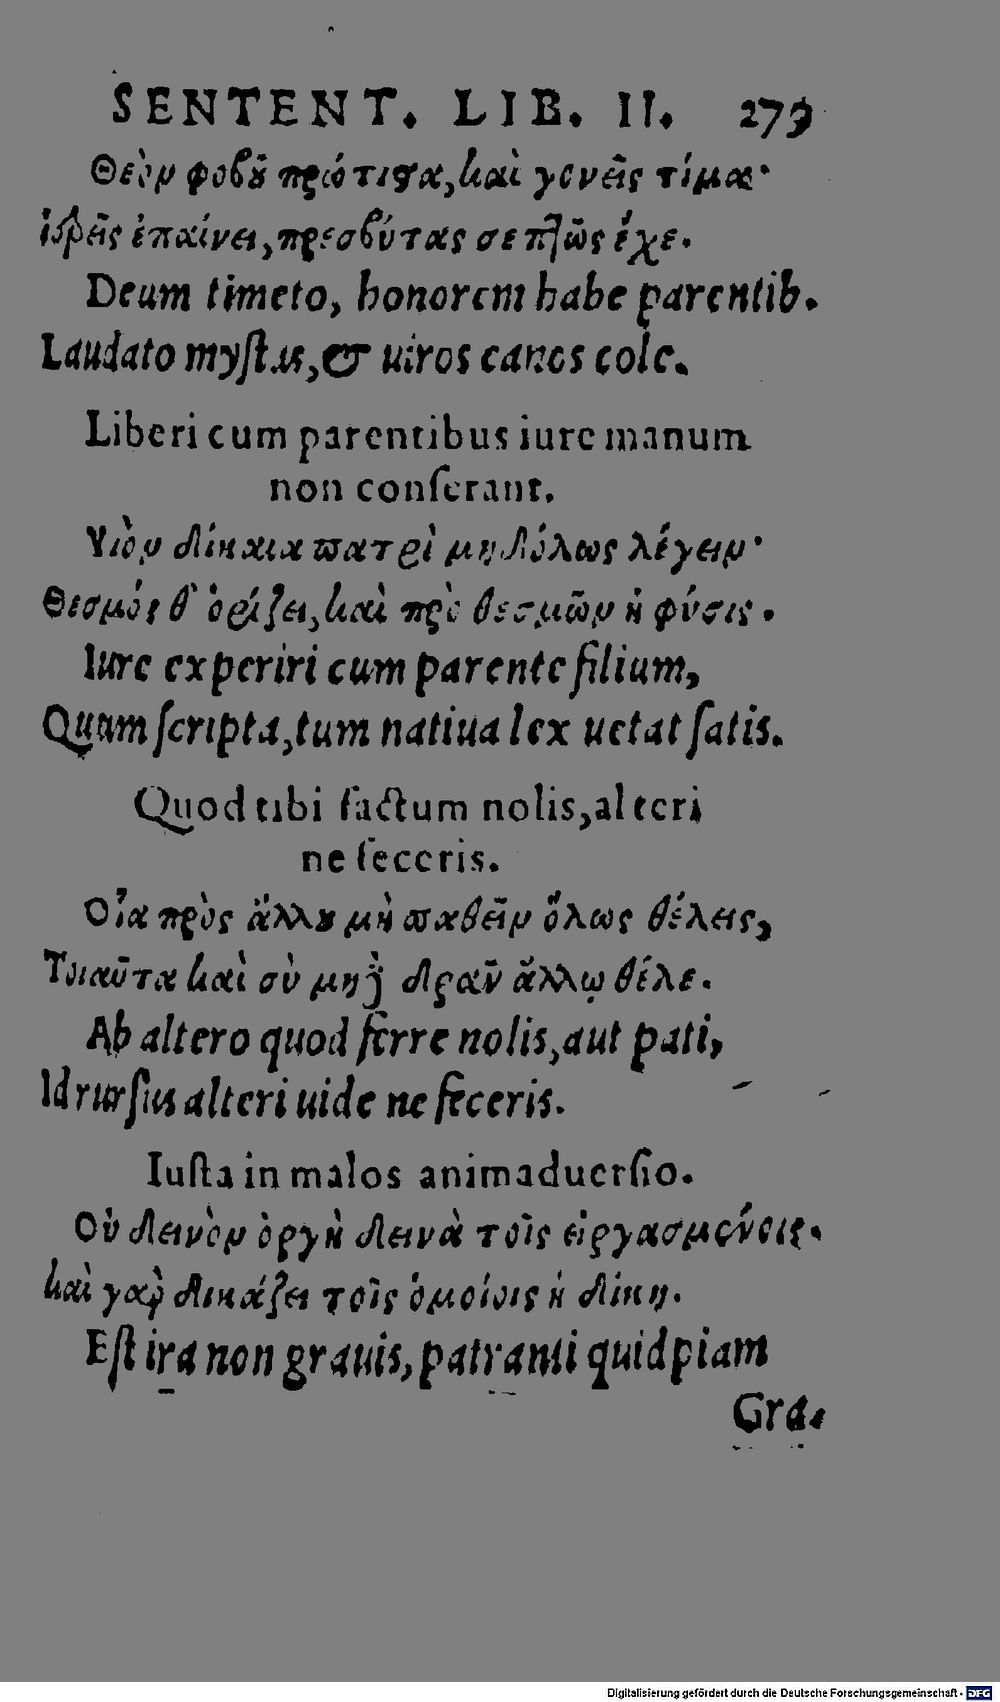 SENTENT. LIB. II. 279
Θεὸν φοβοῦ πρώτιστα, καὶ γονεῖς τίμα·
ἱερεῖς ἐπαίνει, πρεσβύτας σεπτῶς ἔχε.
Deum timeto, honorem habe parentib.
Laudato myſtas, & uiros canos cole.
Liberi cum parentibus iure manum
non conſerant.
Υἱὸν δίκαια πατρὶ μη λέγειν·
Θεσμός θ' ὁρίζει, καὶ πρὸ θεσμῶν ἡ φύσις.
Iure experiri cum parente filium,
Quam ſcripta, tum natiua lex uetat ſatis.
Quod tibi factum nolis, alteri
ne feceris.
Οἷα πρὸς ἄλλου μὴ παθεῖν ὅλως θέλεις,
Τοιαῦτα καὶ σὺ μηδὲ δρᾶν ἄλλῳ θέλε.
Ab altero quod ferre nolis, aut pati,
Id rurſus alteri uide ne feceris.
Iuſta in malos animaduerſio.
Οὐ δεινὸν ὀργὴ δεινὰ τοῖς εἰργασμένοις.
καὶ γὰρ δικάζει τοῖς ὁμοίοις ἡ δίκη.
Eſt ira non grauis, patranti quidpiam
Gra-
Digitalisierung gefördert durch die Deutsche Forschungsgemeinschaft - DFG